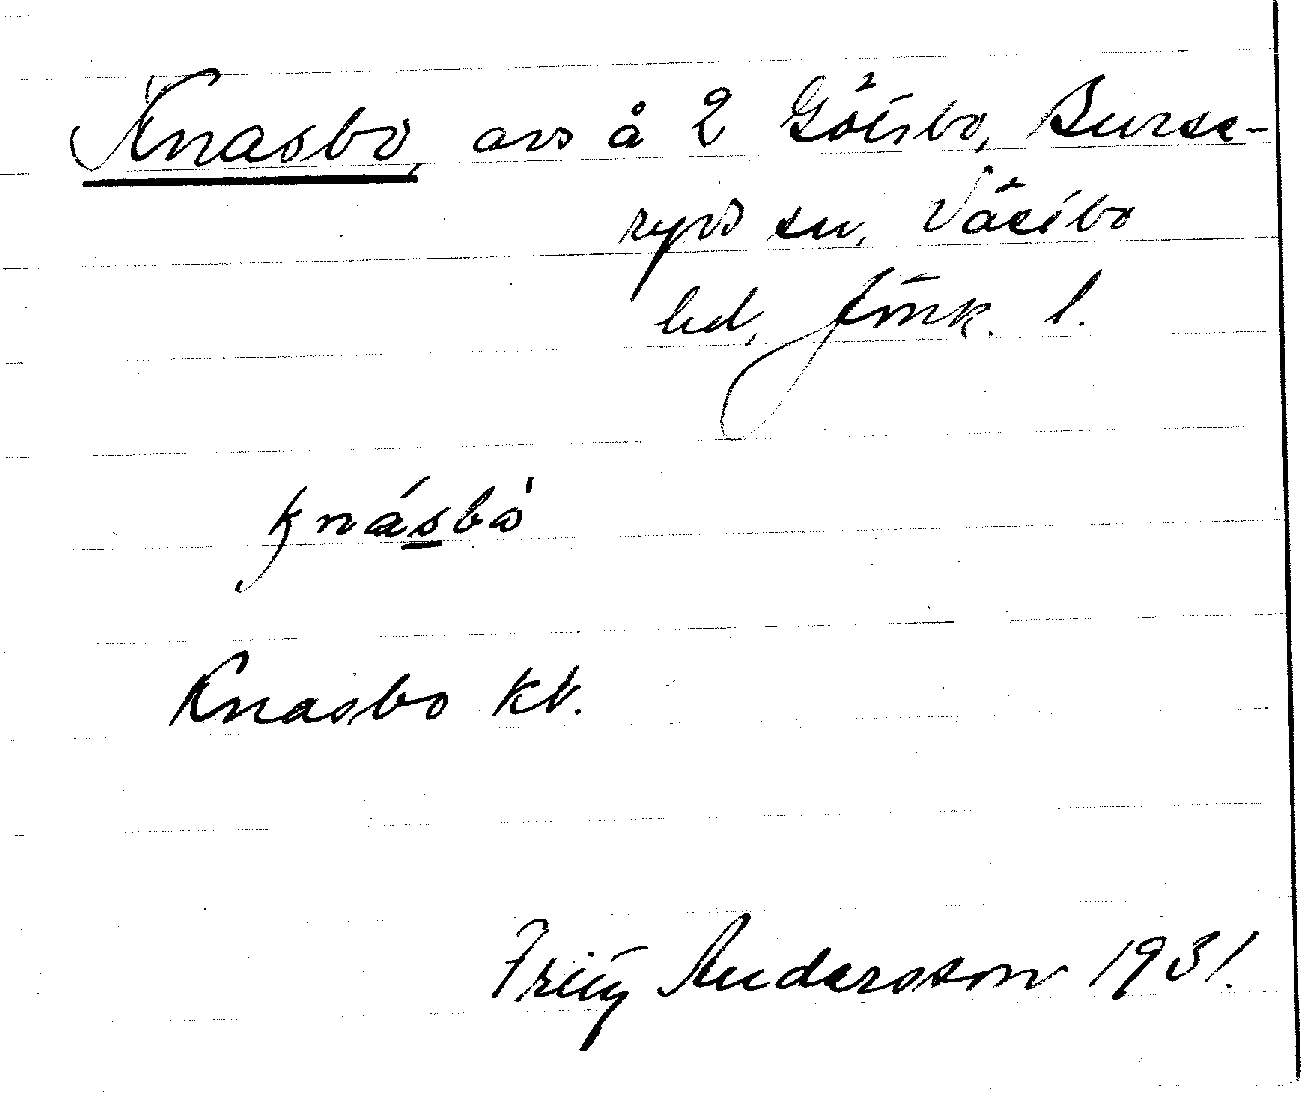 Knasbo, avs å 2 Götsbo, Burse-
ryds sn, Västbo
hd, Jönk. l.
knásbò
Knasbo kk.
Fritz Andersson 1931.